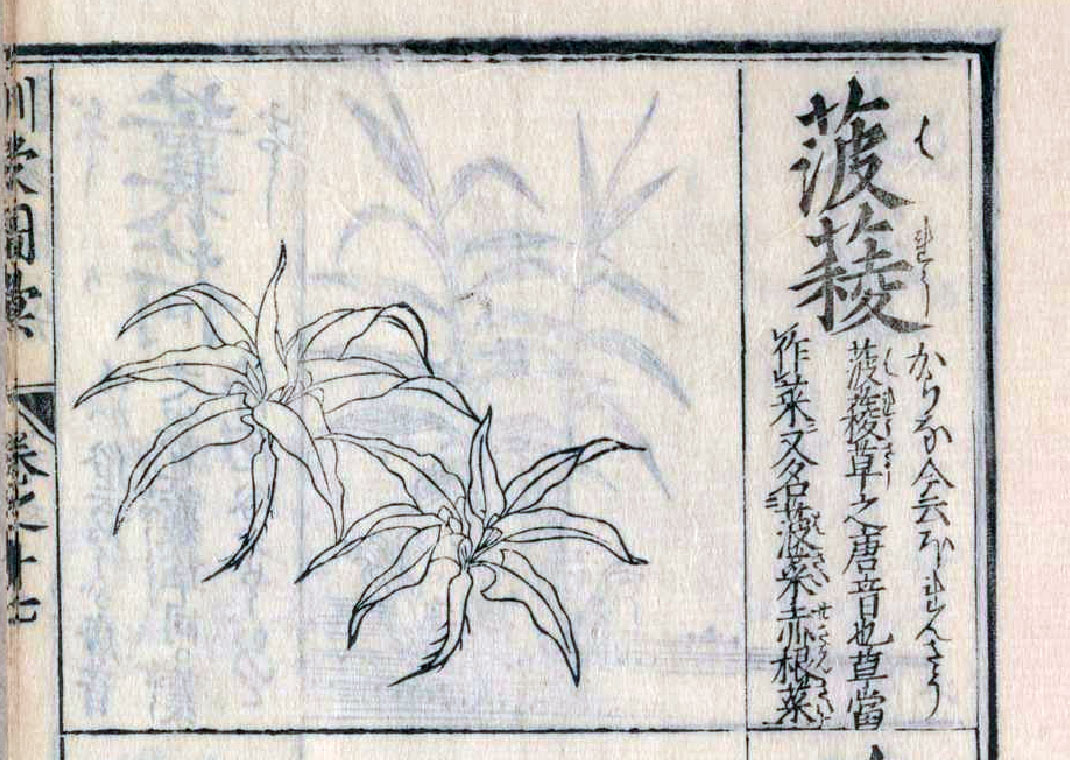 菠薐
はれう
からな今云ほれんさう
菠薐草之唐音也草當
作菜又名菠菜赤根菜
訓蒙圖彙
巻之十七